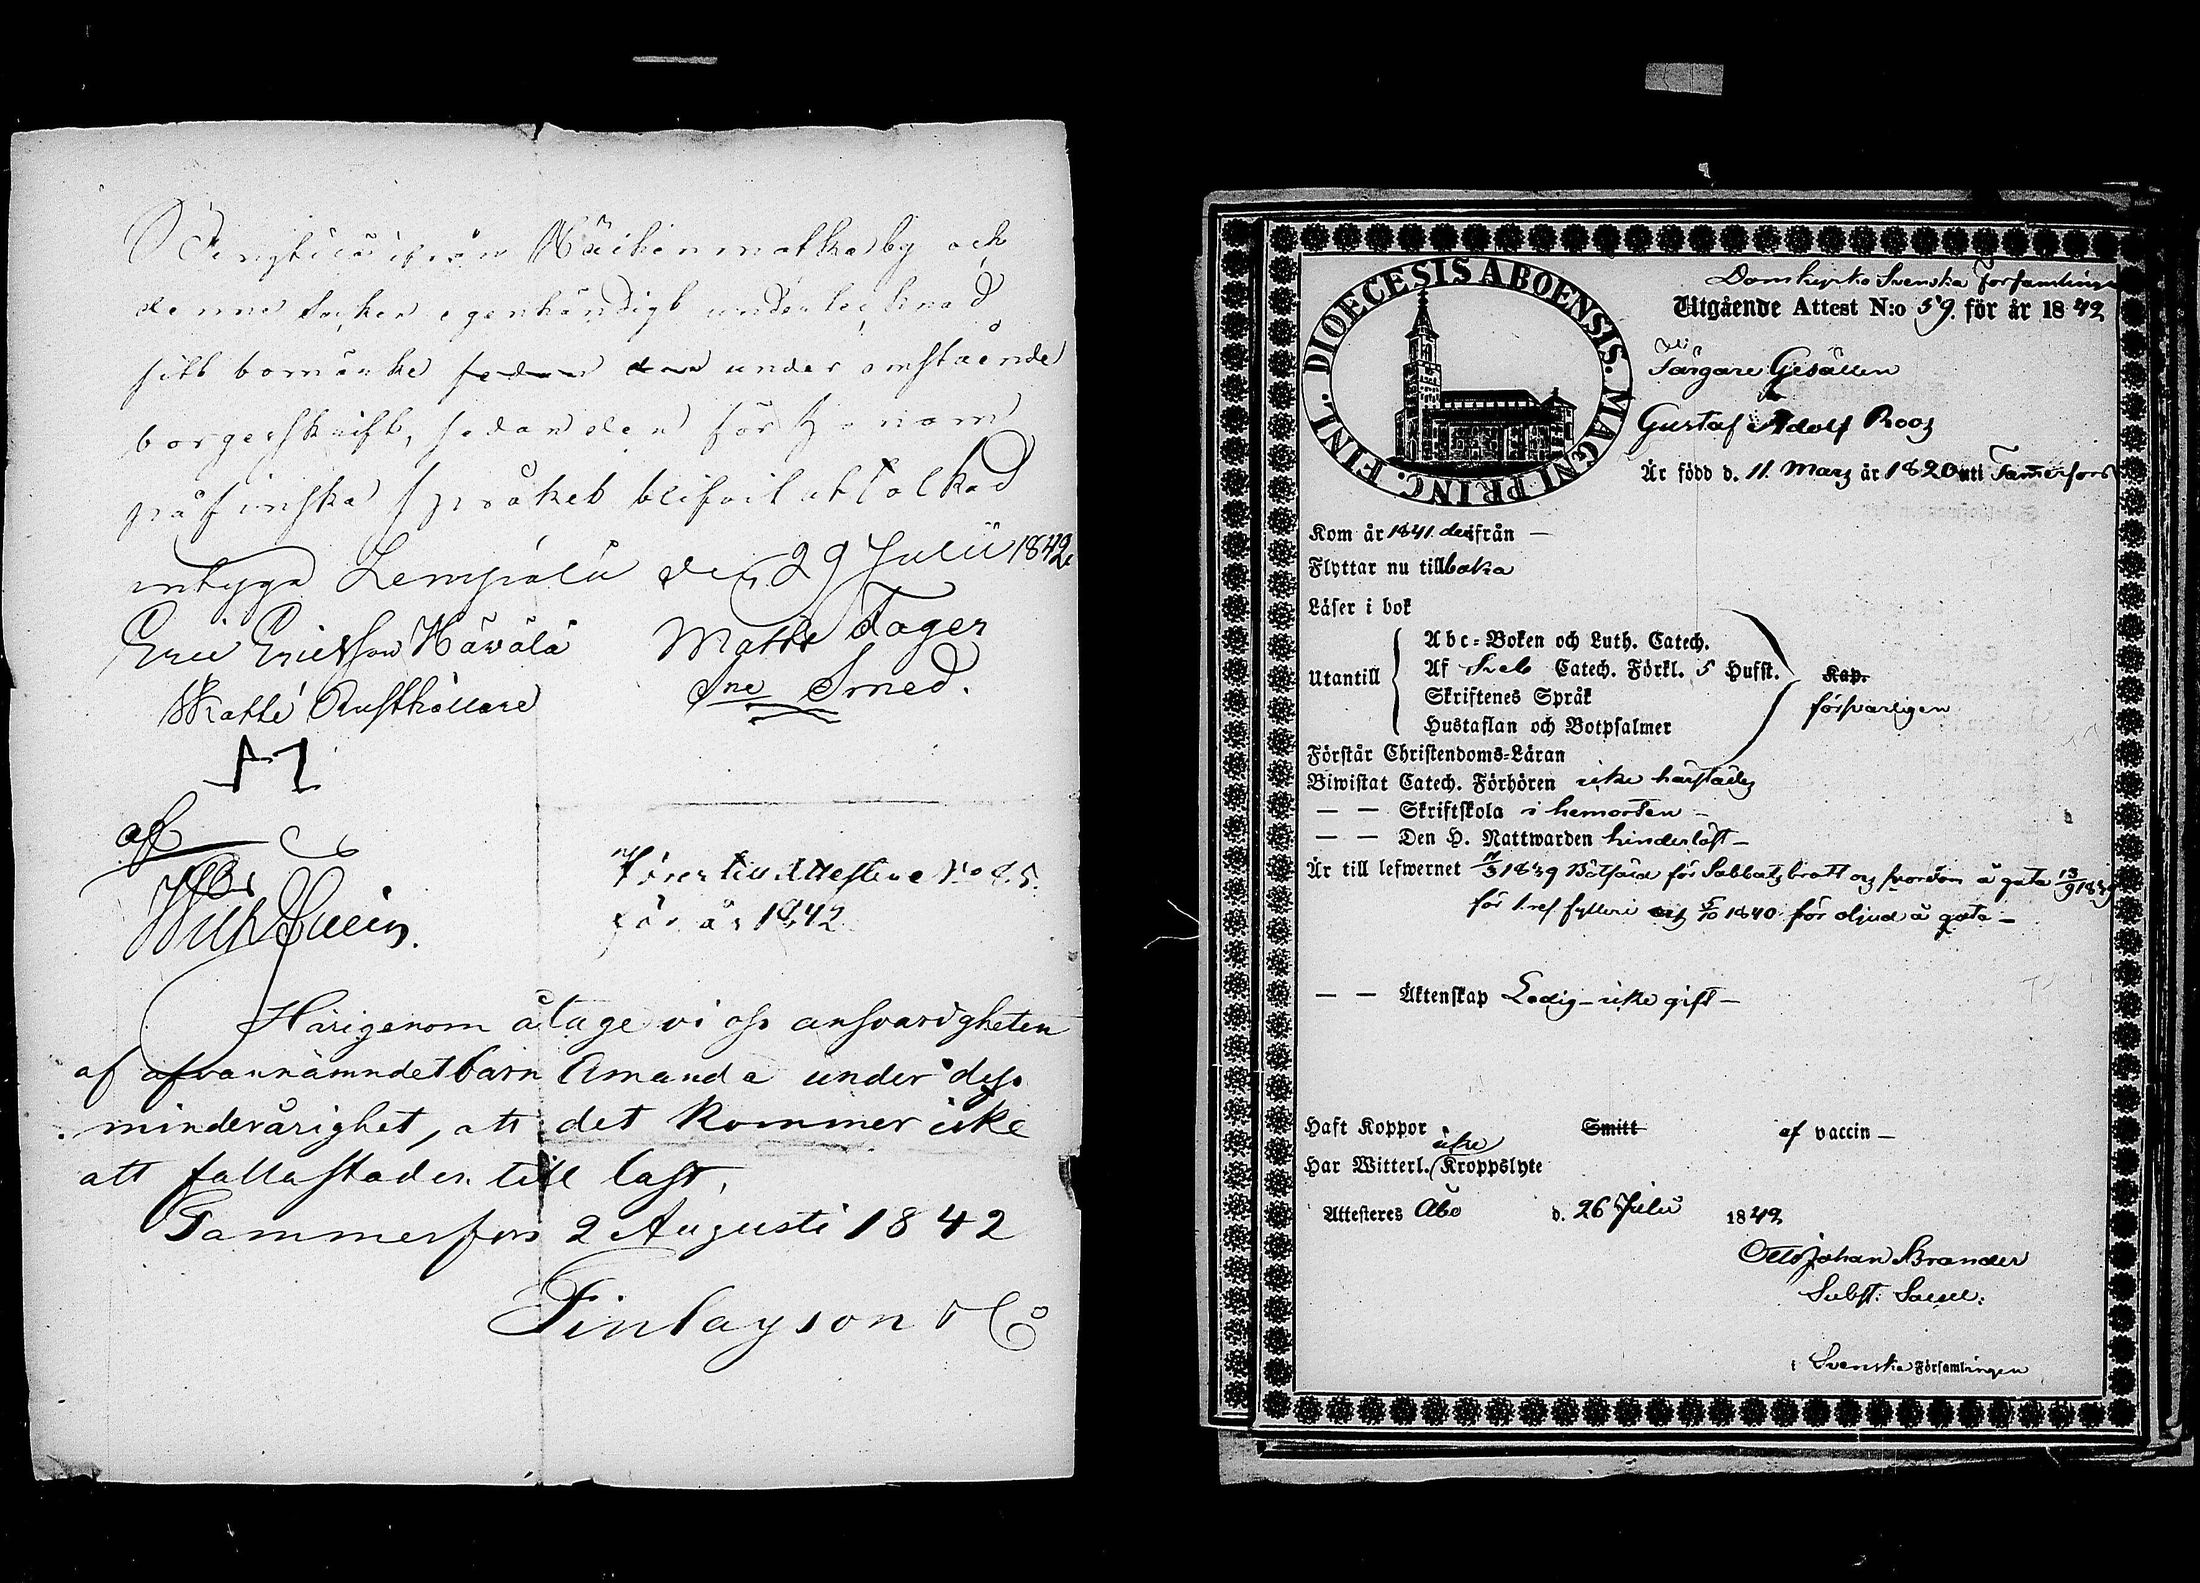 ifrån Häikinmatka by och
denne saken egenhändigt undertecknad
sitt bomärke sedan den under omstående
borgesskrift, sedan den för honom
på finska språket blifvit uttolkad
intyga Lempälä den 29 Julii 1842.
Eric Ericsson Håvälä Matts Fager
Matts Rusthållare Sne Smed.
af
Hörer till Attesten No 25.
för år 1842
Härigenom åtage vi oss ansvarigheten
af ofvannämndet barn Amanda under dess
minderårighet, att det kommer icke
att falla staden till last.
Tammerfors 2 Augusti 1842
Finlayson & Co
DIOECESIS ABOENSIS. MAGNI PRINC. FINL.
Domkyrko Svenska församlingen
Utgående Attest N:o 59. för år 1842
Färgare Gesällen
Gustaf Adolf Roos
Är född d. 11. Mars år 1820 uti Tammerfors
Kom år 1841. derifrån —
Flyttar nu tillbaka
Läser i bok
Utantill
Abc-Boken och Luth. Catech.
Af Sveb Catech. Förkl. 5 Hufst.
Skriftenes Språk
Hustaflan och Botpsalmer
Kap.
försvarligen
Förstår Christendoms-Läran
Biwistat Catech. Förhören icke härstädes
— — Skriftskola i hemorten —
— — Den H. Nattwarden hinderlöst —
Är till lefwernet 17/3 1839 Bötfäld för Sabbatsbrott och svordom å gata 13/9 1839
för 1. res fylleri och 5/10 1840 för oljud å gata —
— — Äktenskap Ledig — icke gift —
Haft Koppor Smitt af vaccin —
Har Witterl. icke Kroppslyte
Attesteres Åbo d. 26 Julii 1842
Otto Johan Brander
Subst: Sacell:
i Svenska Församlingen